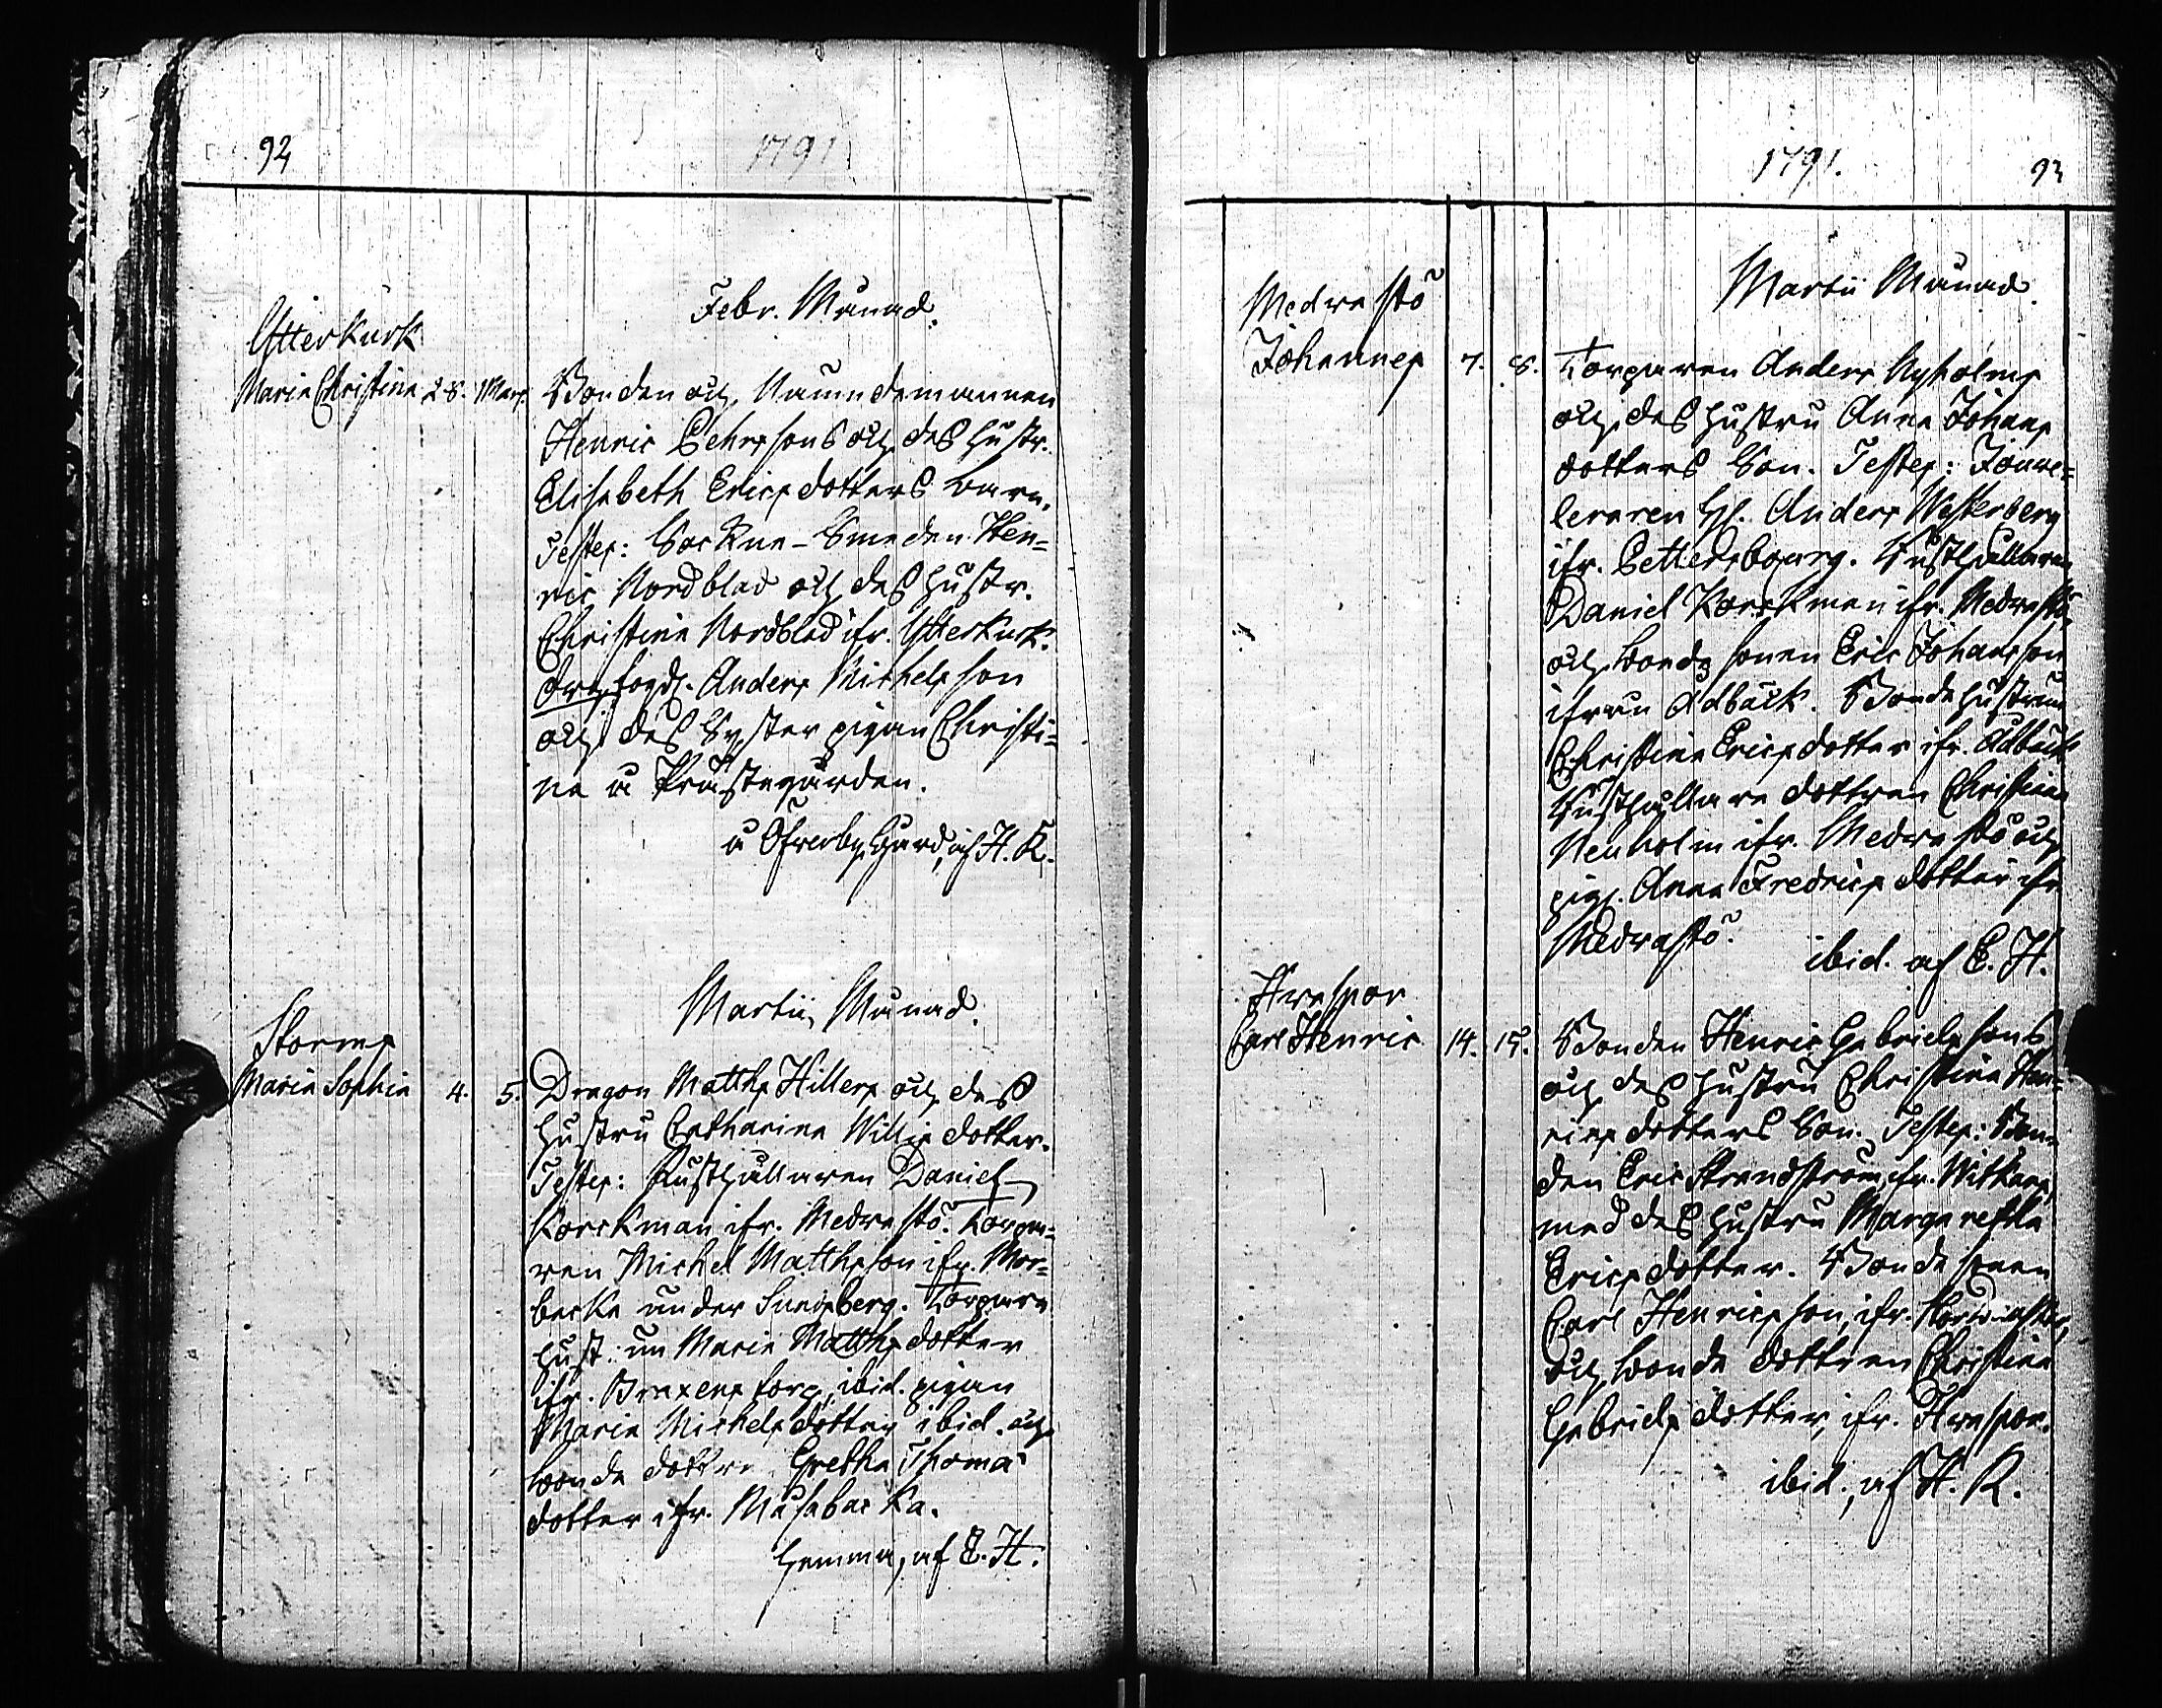 92
1791
Febr. Månad.
Ytterkurk
Maria Christina 28. 1 Mars.
Bonden och Nämndemannen
Henric Pehrssons och dess hustr.
Elisabeth Ericsdotters barn.
Testes: Sockne-Smeden Hen=
ric Nordblad och dess hustr.
Christina Nordblad ifr. Ytterkurk.
fogd. Anders Michelsson
och dess Syster pigan Christi=
na å Prästegården.
å Öfverby Gård, af H. K.
Martii Månad.
Storms
Maria Sophia 4. 5.
Dragon Matths Hillers och dess
hustru Catharina Willgs dotter.
Testes: Rusthållaren Daniel
Korckman ifr. Medvastö. Torpa=
ren Michel Matthsson ifr. Mor=
backa under Sunsberg. Torpare
hust un Maria Mattsdotter
ifr. Braxens torp, ibid. pigan
Maria Michelsdotter ibid. och
bonde dottren Gretha Thomas
dotter ifr. Masabacka.
hemma, af E. H.
1791.
93
Martii Månad.
Medvastö
Johannes 7. 8.
Torparen Anders Nyholms
och dess hustru Anna Johans
dotters Son. Testes: Jouve=
leraren H. Anders Westerberg
ifr. Pettersbourg. Rusthållaren
Daniel Korckman ifr. Medvastö,
och bonde sonen Eric Johansson
ifrån Ådbäck. Bondehustrun
Christina Ericsdotter ifr. Ådbäck
Rusthållare dottren Christina
Neuholm ifr. Medvastö och
pig. Anna Fredricsdotter ifr
Medvastö.
ibid. af E. H.
Hvaspor
Carl Henric 14. 15.
Bonden Henric Gabrielssons
och dess hustru Christina Hen=
rics dotters Son. Testes: Bon=
den Eric Strandström, ifr.
med dess hustru Margaretha
Ericsdotter. Bonde sonen
Carl Henricsson, ifr.
och bonde dottren Christina
Gabriels dotter, ifr. Hvaspor.
ibid., af H. K.